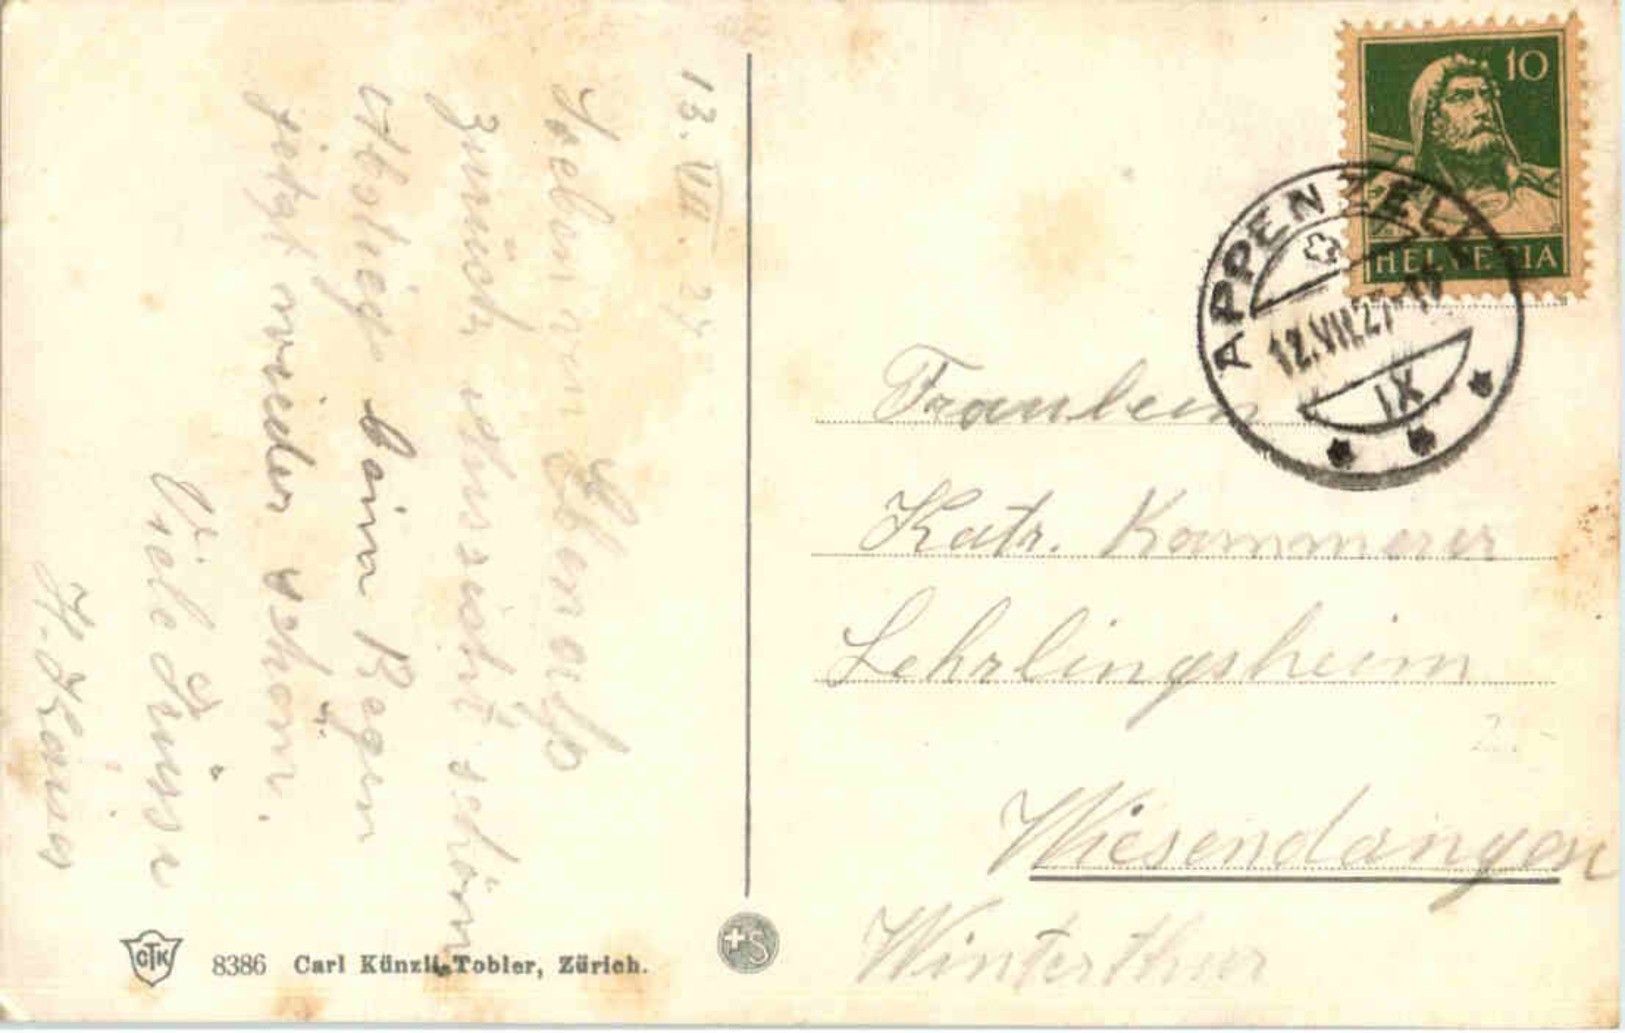 13. VII 27
Soeben von Ebenalp
zurück Aussicht schön
Abstieg beim Regen
jetzt wieder schön.
Viele Grüsse
10
HELVETIA
APPENZELL
12.VII.27
IX
Fraulein
Katr. Kammerer
Lehrlingsheim
Wiesendangen
Winterthur
CTK
8386 Carl Künzli-Tobler, Zürich.
+S